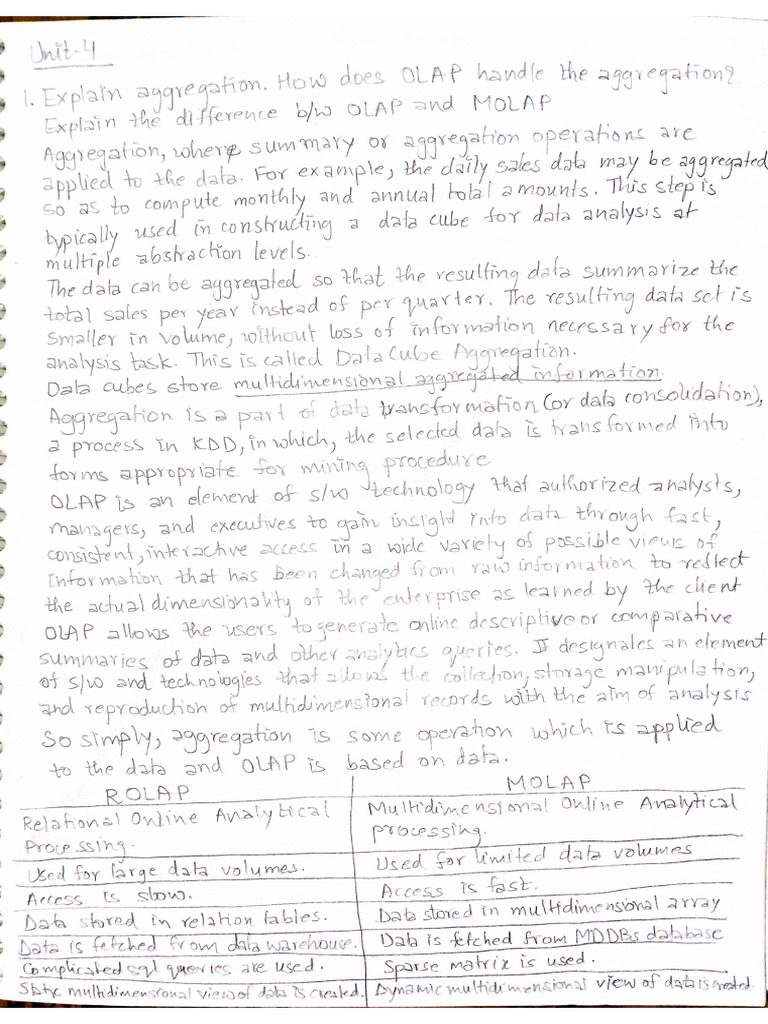 Unit-4
1. Explain aggregation. How does OLAP handle the aggregation?
Explain the difference b/w OLAP and MOLAP
Aggregation, where summary or aggregation operations are
applied to the data. For example, the daily sales data may be aggregated
so as to compute monthly and annual total amounts. This step is
typically used in constructing a data cube for data analysis at
multiple abstraction levels.
The data can be aggregated so that the resulting data summarize the
total sales per year instead of per quarter. The resulting data set is
smaller in volume, without loss of information necessary for the
analysis task. This is called Data Cube Aggregation.
Data cubes store multidimensional aggregated information.
Aggregation is a part of data transformation (or data consolidation),
a process in KDD, in which, the selected data is transformed into
forms appropriate for mining procedure
OLAP is an element of s/w technology that authorized analysts,
managers, and executives to gain insight into data through fast,
consistent, interactive access in a wide variety of possible views of
information that has been changed from raw information to reflect
the actual dimensionality of the enterprise as learned by the client
OLAP allows the users to generate online descriptive or comparative
summaries of data and other analytics queries. It designates an element
of s/w and technologies that allows the collection, storage manipulation,
and reproduction of multidimensional records with the aim of analysis
So simply, aggregation is some operation which is applied
to the data and OLAP is based on data.
ROLAP MOLAP
Relational Online Analytical Multidimensional Online Analytical
Processing. processing.
Used for large data volumes. Used for limited data volumes
Access is slow. Access is fast.
Data stored in relation tables. Data stored in multidimensional array
Data is fetched from data warehouse. Data is fetched from MDDBs database
Complicated sql queries are used. Sparse matrix is used.
Static multidimensional view of data is created. Dynamic multidimensional view of data is created.